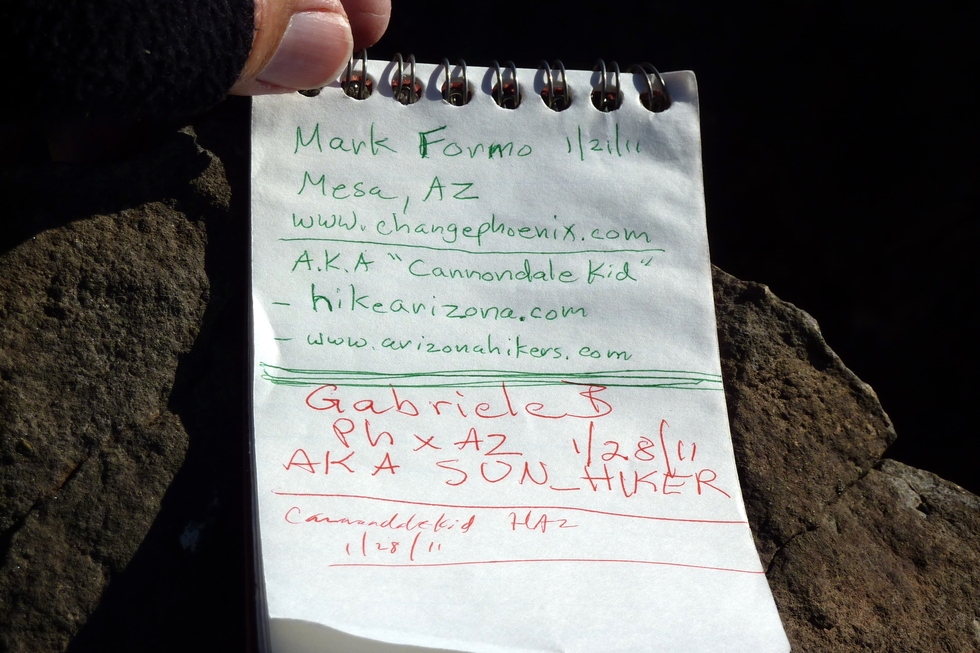 Mark Formo 1/21/11
Mesa, AZ
www.changephoenix.com
A.K.A "Cannondale Kid"
- hikearizona.com
- www.arizonahikers.com
Gabriele B
Phx AZ 1/28/11
AKA SUN_HIKER
Cannondalekid HAZ
1/28/11